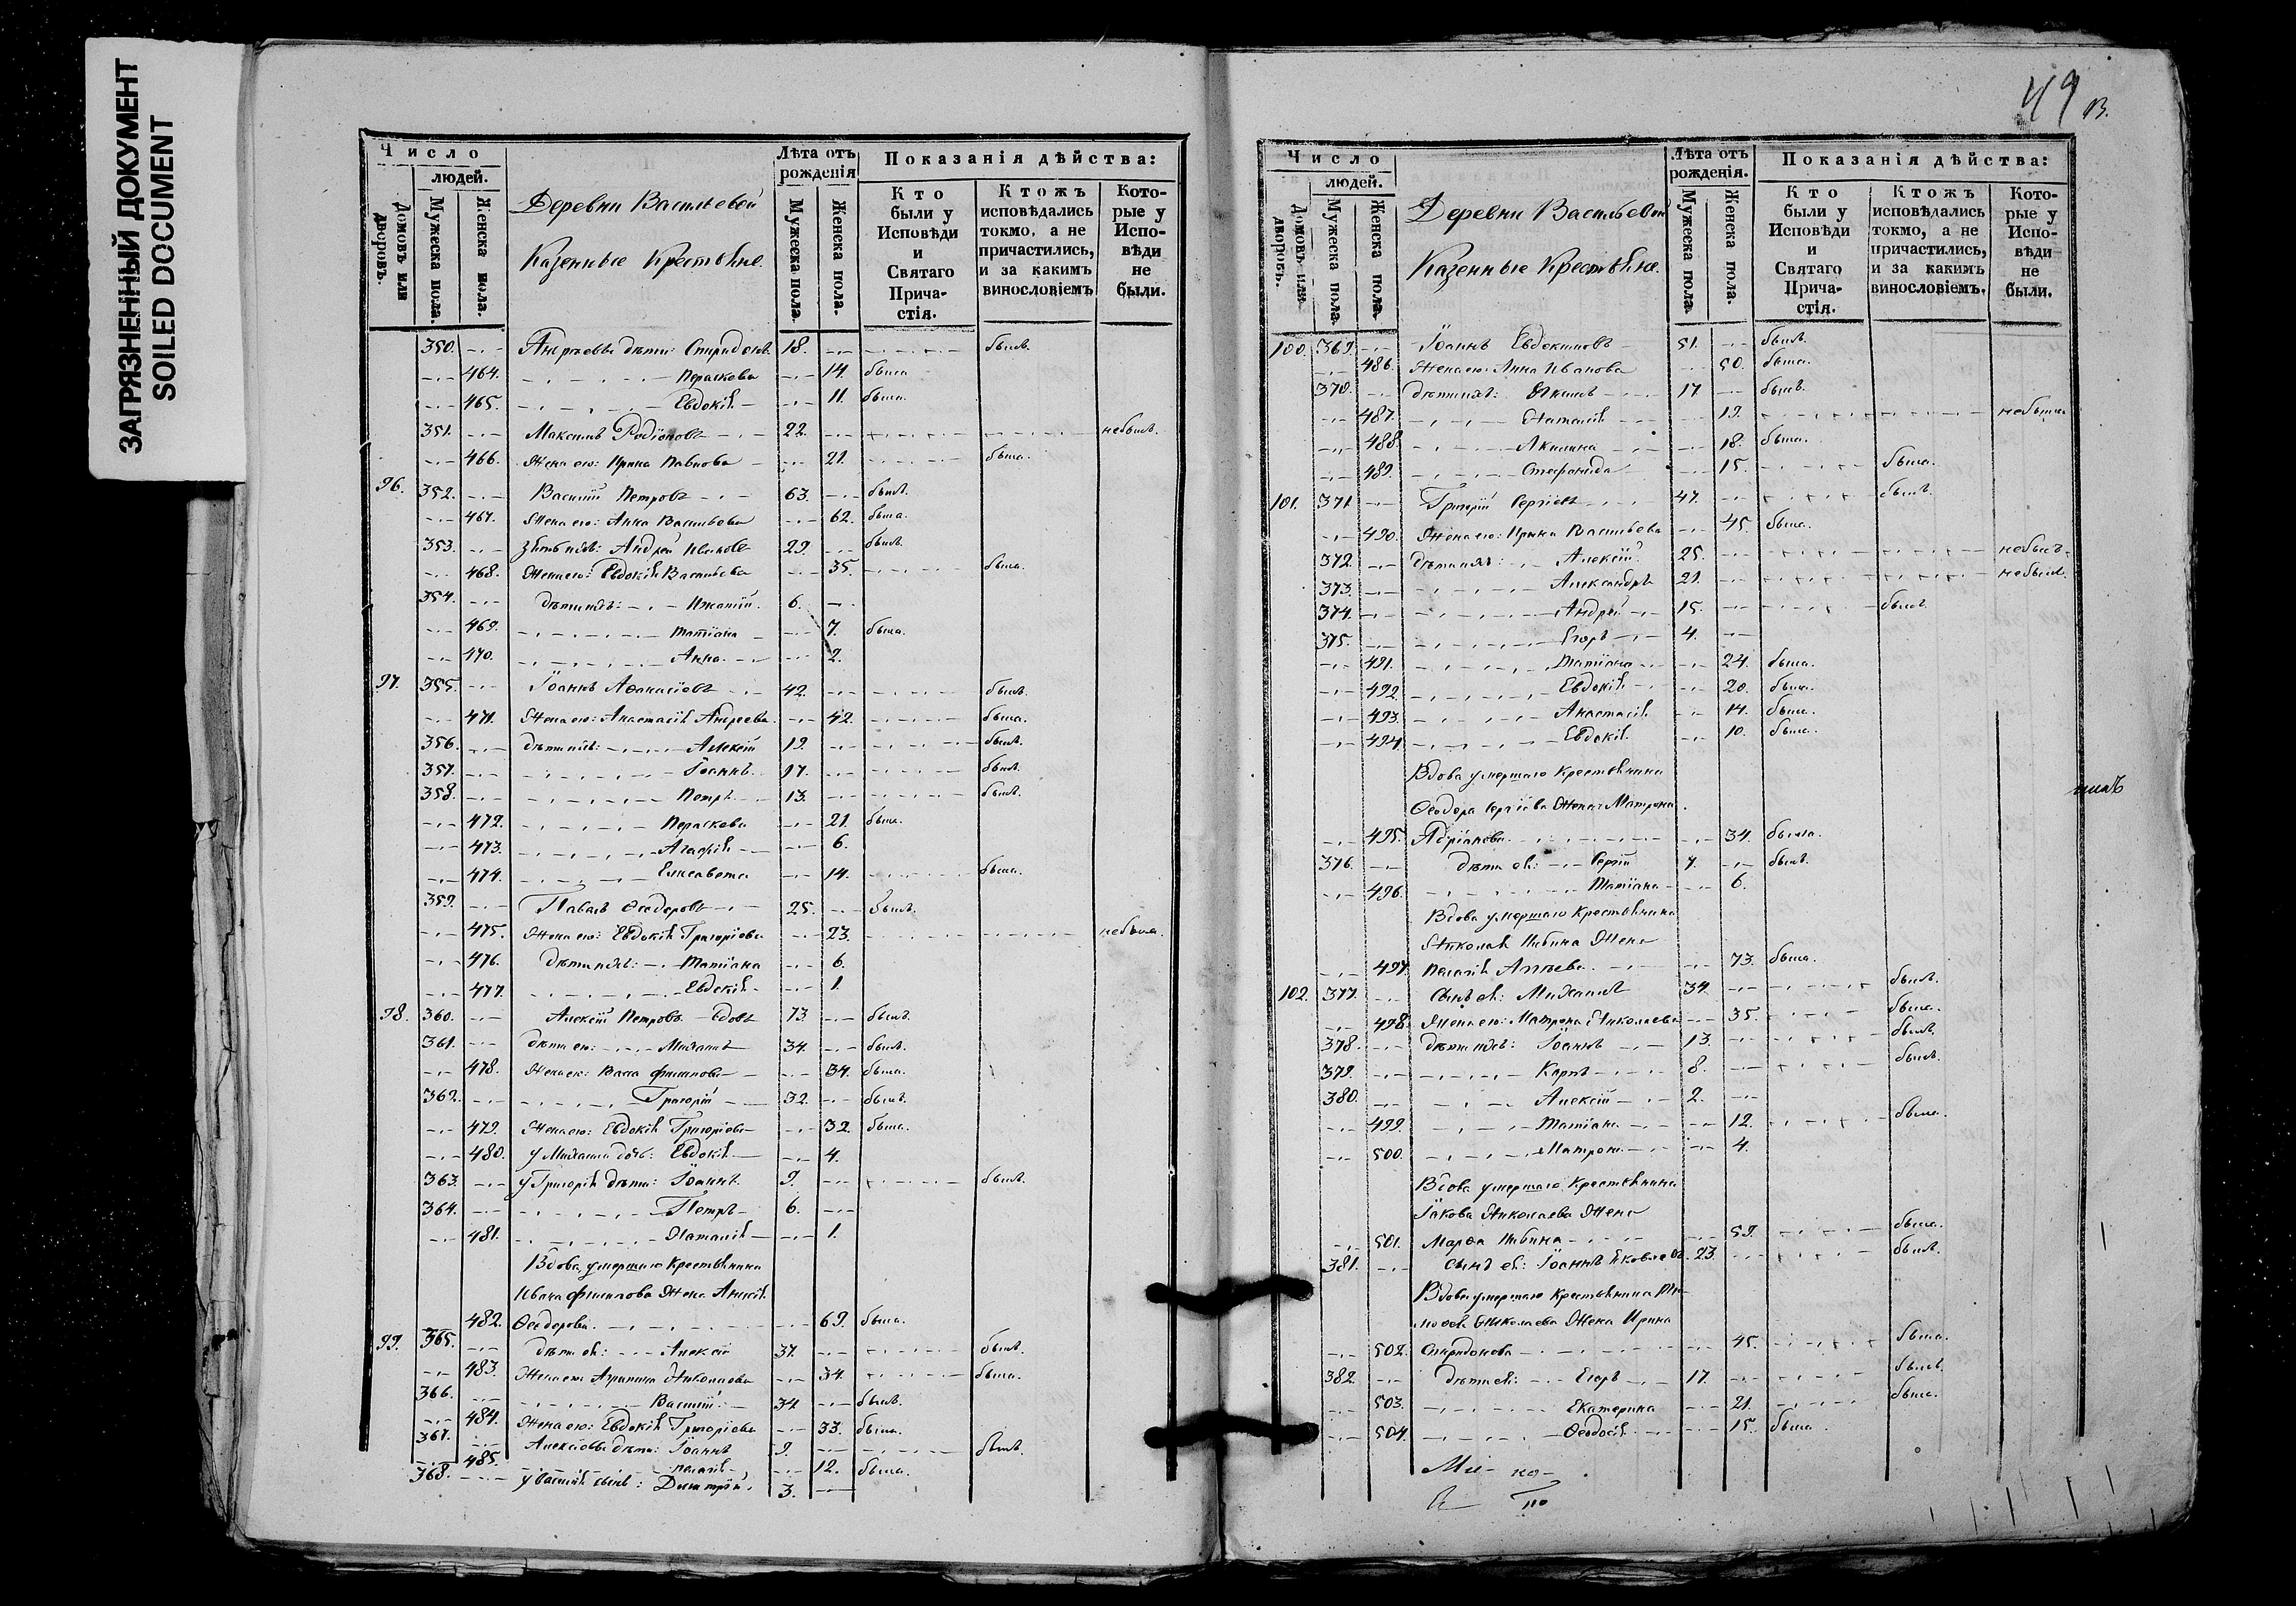 ЗАГРЯЗНЕННЫЙ ДОКУМЕНТ
SOILED DOCUMENT
Число
людей.
Домовъ или дворовъ.
Мужеска пола.
Женска пола.
Деревни Васильевой
Казенные Крестьяне.
Лѣта отъ рожденія
Мужеска пола.
Женска пола.
Показанія дѣйства:
Кто были у Исповѣди и Святаго Причастія.
Ктожъ исповѣдались токмо, а не причастились, и за какимъ винословіемъ
Которые у Исповѣди не были.
350. Андреевы дѣти: Спиридонъ 18. былъ.
464. Параскева 14. была
465. Евдокія 11. была.
351. Максимъ Родіоновъ 22. небылъ.
466. Жена его: Ирина Павлова 21. была.
96. 352. Василій Петровъ 63. былъ.
467. Жена его: Анна Васильева 62. была.
353. Зять ихъ: Андрей Ивановъ 29. былъ.
468. Жена его: Евдокія Васильева 35. была.
354. дѣти ихъ: Игнатій. 6.
469. Татіана 7. была.
470. Анна 2.
97. 355. Іоаннъ Аѳанасіевъ 42. былъ.
471. Жена его: Анастасія Андреева 42. была.
356. дѣти ихъ: Алексій 19. былъ.
357. Іоаннъ 17. былъ.
358. Петръ 13. былъ.
472. Параскева 21. была.
473. Агафія 6.
474. Елисавета 14. была.
359. Павелъ Ѳеодоровъ 25. былъ.
475. Жена его: Евдокія Григоріева 23. небыла.
476. дѣти ихъ: Татіана 6.
477. Евдокія 1.
98. 360. Алексій Петровъ вдовъ 73. былъ.
361. дѣти его: Михаилъ 34. былъ.
478. Жена его: Васса Филипова 34. была.
362. Григорій 32. былъ.
479. Жена его: Евдокія Григоріева 32. была.
480. у Михаила дочь: Евдокія 4.
363. у Григорія дѣти: Іоаннъ 9. былъ.
364. Петръ 6.
481. Наталія 1.
Вдова умершаго Крестьянина
Ивана Филипова Жена Анисія
482. Ѳеодорова. 69. была.
99. 365. дѣти ея: Алексій 37. былъ.
483. Жена его Агрипина Николаева 34. была.
366. Василій 34 былъ.
484. Жена его: Евдокія Григоріева 33. была.
367. Алексіевы дѣти: Іоаннъ 9. былъ.
485. Пелагія 12. была.
368. у Василія сынъ: Димитрій. 3.
49
Число
людей.
Домовъ или дворовъ.
Мужеска пола.
Женска пола.
Деревни Васильевой
Казенные Крестьяне.
Лѣта отъ рожденія.
Мужеска пола.
Женска пола.
Показанія дѣйства:
Кто были у Исповѣди и Святаго Причастія.
Ктожъ исповѣдались токмо, а не причастились, и за какимъ винословіемъ.
Которые у Исповѣди не были.
100. 369. Іоаннъ Евдокимовъ 51. былъ.
486. Жена его: Анна Иванова 50. была.
370. дѣти ихъ: Іакимъ 17 былъ.
487. Наталія 19. небыла
488. Акилина 18. была.
489. Стефанида 15. была.
101. 371 Григорій Сергіевъ 47. былъ.
490. Жена его: Ирина Васильева 45. была.
372. дѣти ихъ: Алексій 25. небылъ.
373. Александръ 21. небылъ.
374. Андрей 15. былъ.
375. Егоръ 4.
491. Татіана 24. была.
492. Евдокія 20. была.
493. Анастасія 14. была.
494. Евдокія 10. была.
Вдова умершаго Крестьянина
Ѳеодора Сергіева Жена Матрона
495. Адріанова. 34. была.
376. дѣти ея: Сергій 7. былъ.
496. Татіана 6.
Вдова умершаго Крестьянина
Николая Жена
497. Пелагія 73. была.
102. 377. Сынъ ея: Михаилъ 34. былъ.
498. Жена его: Матрона Николаева 35. была.
378. дѣти ихъ: Іоаннъ 13. былъ.
379. Карпъ 8. былъ.
380. Алексій 2.
499. Татіана 12. была.
500. Матрона 4.
Вдова умершаго Крестьянина
Іакова Николаева Жена
501. Марѳа 59. была.
381. Сынъ ея: Іоаннъ Яковлевъ 23. былъ.
Вдова умершаго Крестьянина Ти-
моѳея Николаева Жена Ирина
502. Спиридонова 45. была.
382. дѣти ея: Егоръ 17. былъ.
503. Екатерина 21. была.
504. Ѳеодосія 15. была.